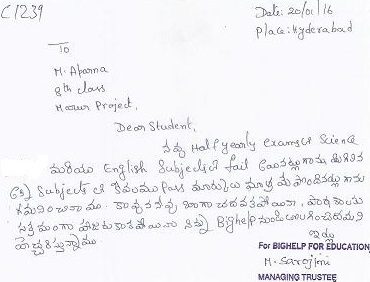 C1239
Date: 20/01/16
Place: Hyderabad
To
M. Aparna
8th class
Morur Project,
Dear Student,
నీవు Half yearly exams లో Science
మరియు English Subjects లో fail అయినట్లుగాను మిగిలిన
Subjects లో కేవలము Pass మార్కులు మాత్రమే పొందినట్లు గాను
గమనించినాము. కావున నీవు బాగా చదవకపోయినా, పాఠశాలకు
సక్రమంగా హాజరు కాకపోయినా నిన్ను Bighelp నుండి తొలగించెదమని
హెచ్చరిస్తున్నాము.
ఇట్లు
For BIGHELP FOR EDUCATION
M. Sarojini
MANAGING TRUSTEE